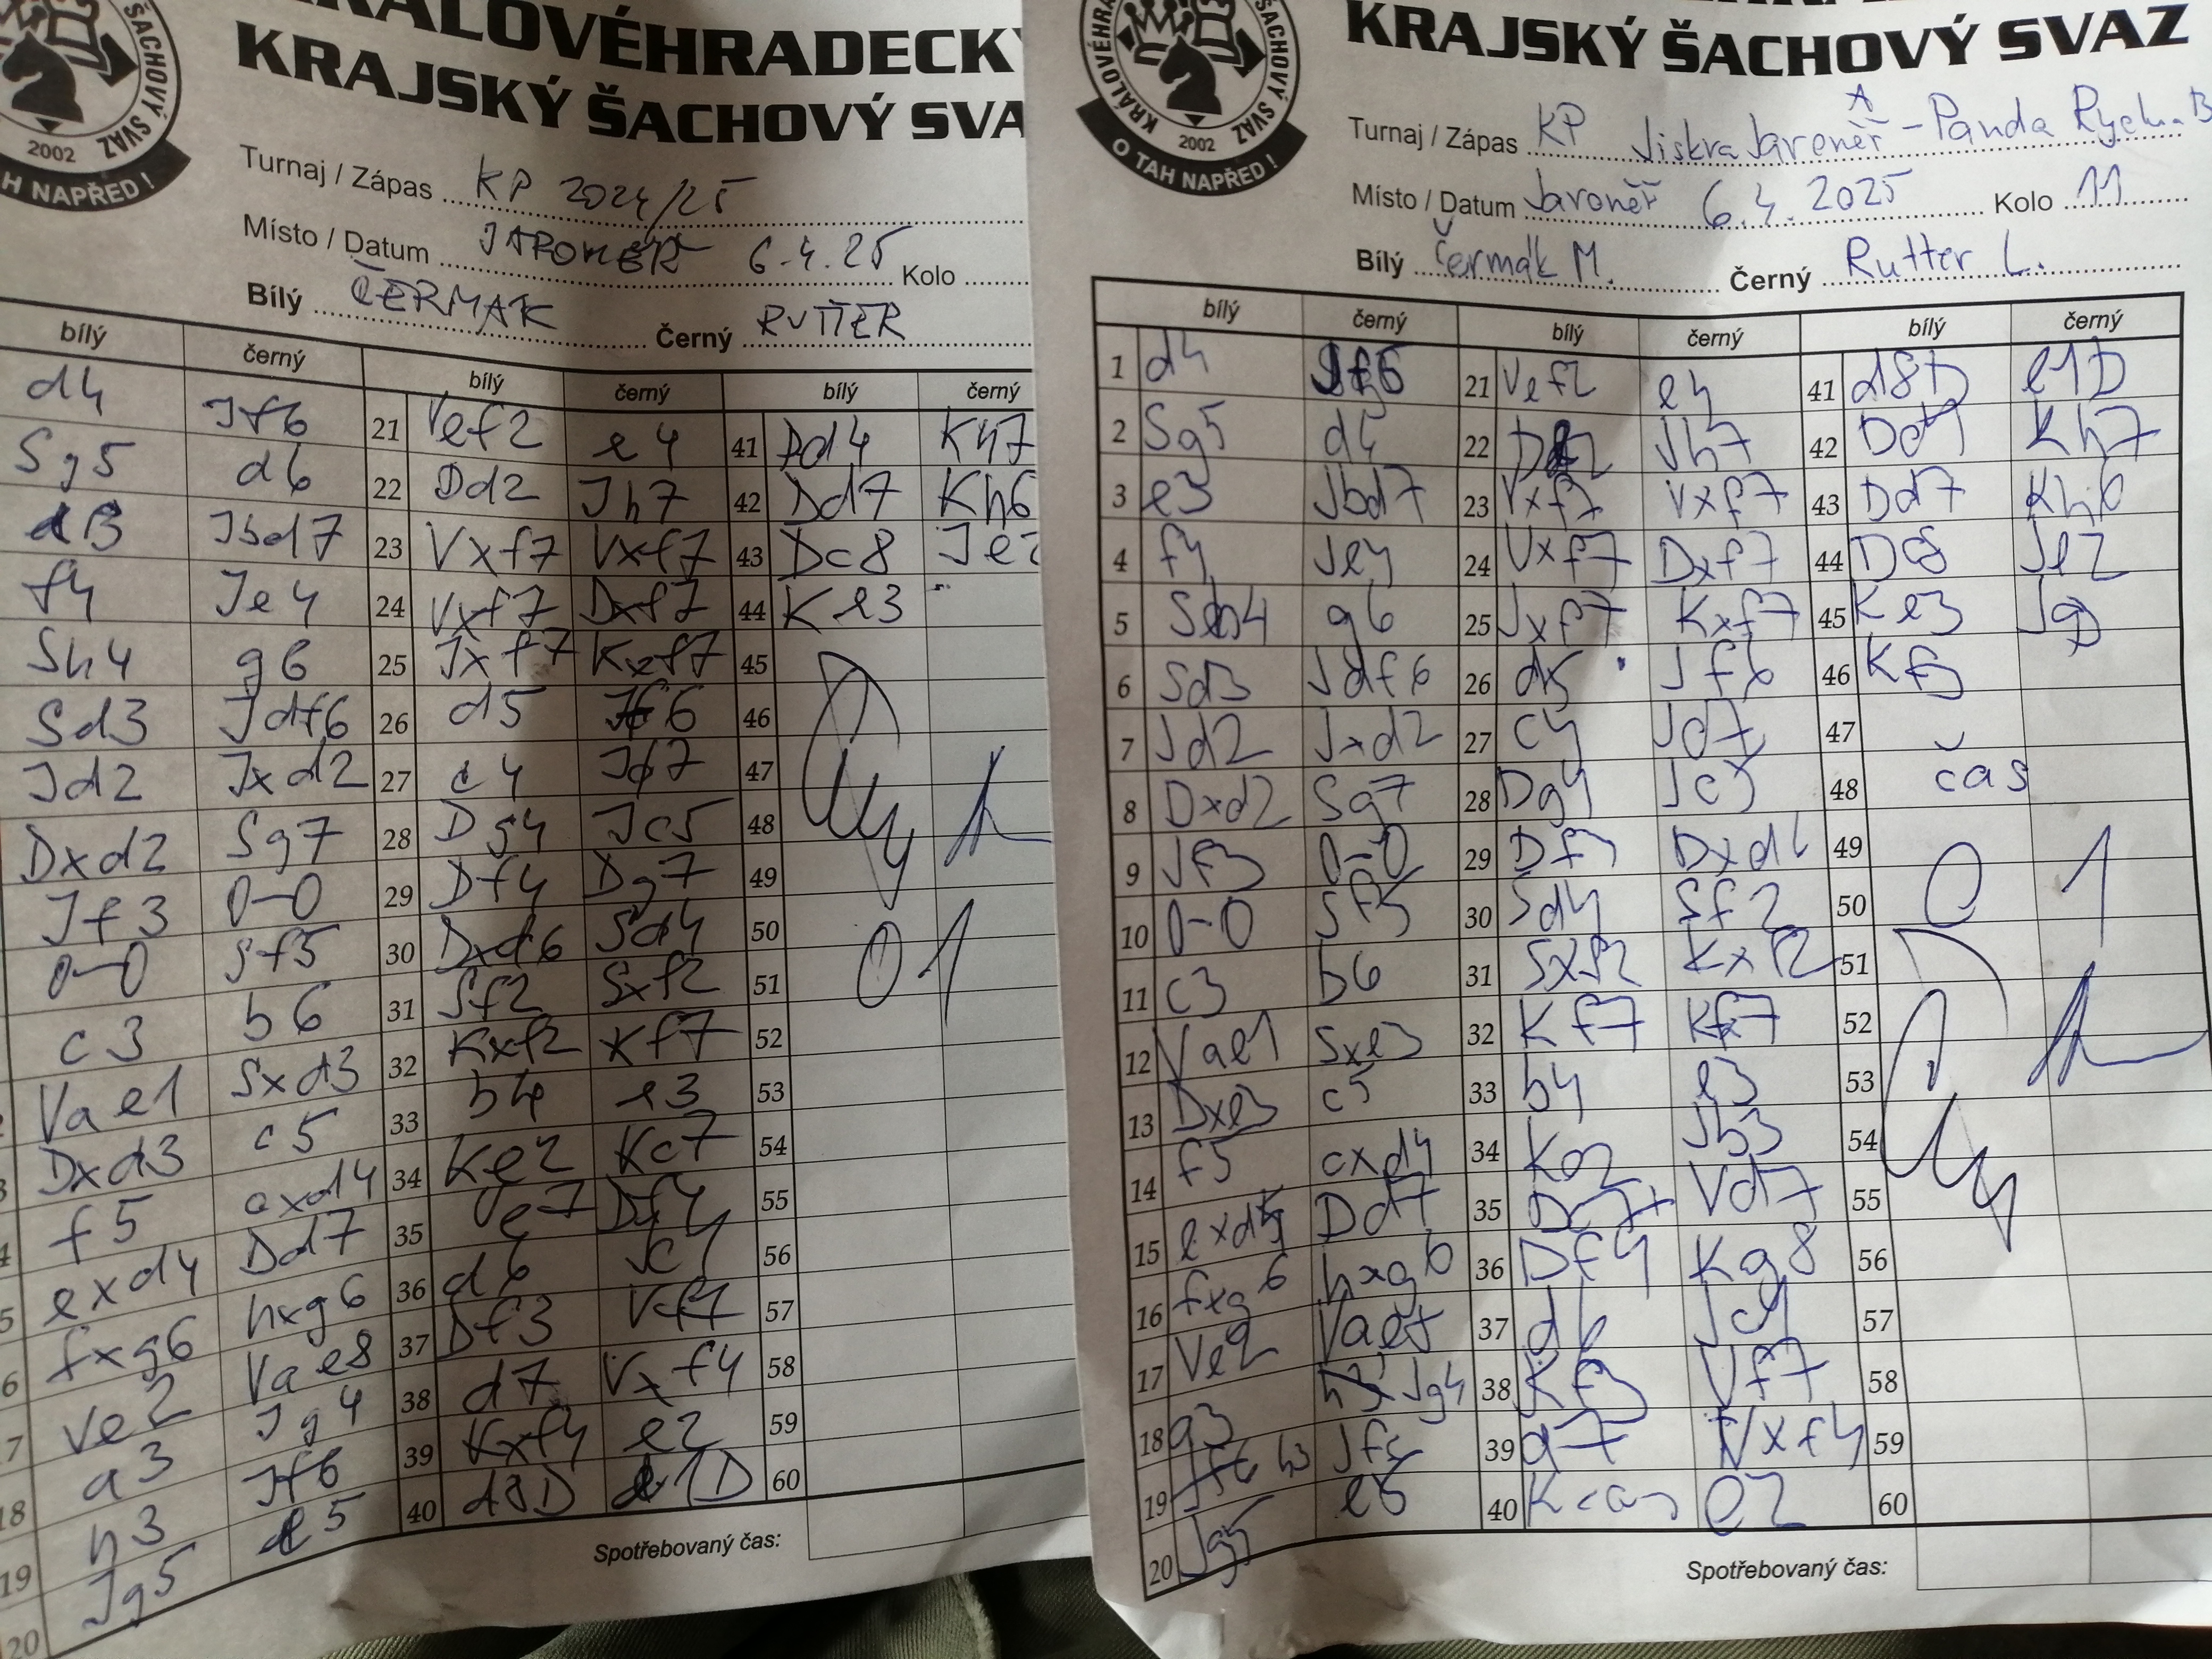 KRÁLOVÉHRADECKÝ
KRAJSKÝ ŠACHOVÝ SVA
ŠACHOVÝ SVAZ
2002
H NAPŘED!
Turnaj / Zápas KP 2024/25
Místo / Datum JAROMĚŘ 6.4.25 Kolo
Bílý ČERMAK Černý RUTTER
bílý černý bílý černý bílý černý
d4 Jf6 21 Vef2 e4 41 Dd4 Kh7
Sg5 d6 22 Dd2 Jh7 42 Dd7 Kh6
Jbd7 23 Vxf7 Vxf7 43 Dc8 Je2
f4 Je4 24 Vxf7 Dxf7 44 Ke3
Sh4 g6 25 Jxf7 Kxf7 45
Sd3 Jdf6 26 d5 Jf6 46
Jd2 Jxd2 27 c4 Jd7 47
Dxd2 Sg7 28 Dg4 Jc5 48
Jf3 0-0 29 Df4 Dg7 49
0-0 Sf5 30 Dxd6 Sd4 50 0 1
c3 b6 31 Sf2 Sxf2 51
Vae1 Sxd3 32 Kxf2 Kf7 52
Dxd3 c5 33 b4 e3 53
f5 cxd4 34 Ke2 Kc7 54
exd4 Dd7 35 55
fxg6 hxg6 36 d6 Jc4 56
Ve2 Vae8 37 Df3 Vf7 57
a3 Jg4 38 d7 Vxf4 58
h3 Jf6 39 Kxf4 e2 59
20 Jg5 e5 40 d8D e1D 60
Spotřebovaný čas:
KRAJSKÝ ŠACHOVÝ SVAZ
KRÁLOVÉHRA ŠACHOVÝ SVAZ
2002
O TAH NAPŘED!
Turnaj / Zápas KP Jiskra Jaroměř A - Panda Rych. B
Místo / Datum Jaroměř 6.4.2025 Kolo 11
Bílý Čermák M. Černý Rutter L.
bílý černý bílý černý bílý černý
1 d4 Jf6 21 Vef2 e4 41 d8D e1D
2 Sg5 d6 22 Jh7 42 Dd4 Kh7
3 e3 Jbd7 23 Vxf7 Vxf7 43 Dd7 Kh6
4 f4 Je4 24 Vxf7 Dxf7 44 Dc8 Je2
5 Sh4 g6 25 Jxf7 Kxf7 45 Ke3
6 Sd3 Jdf6 26 d5 Jf6 46 Kf3
7 Jd2 Jxd2 27 c4 Jd7 47
8 Dxd2 Sg7 28 Dg4 Jc5 48 čas
9 Jf3 0-0 29 Df4 49 0 1
10 0-0 Sf5 30 Sd4 Sf2 50
11 c3 b6 31 Sxf2 Kxf2 51
12 Vae1 Sxe3 32 Kf7 Kf7 52
13 Dxe3 c5 33 b4 e3 53
14 f5 cxd4 34 Ke2 Jb3 54
15 exd4 Dd7 35 Dc7+ Vd7 55
16 fxg6 hxg6 36 Df4 Kg8 56
17 Ve2 Vae8 37 d6 Jc4 57
18 a3 Jg4 38 Kf3 Vf7 58
19 h3 Jf6 39 d7 Vxf4 59
20 Jg5 e5 40 e2 60
Spotřebovaný čas: